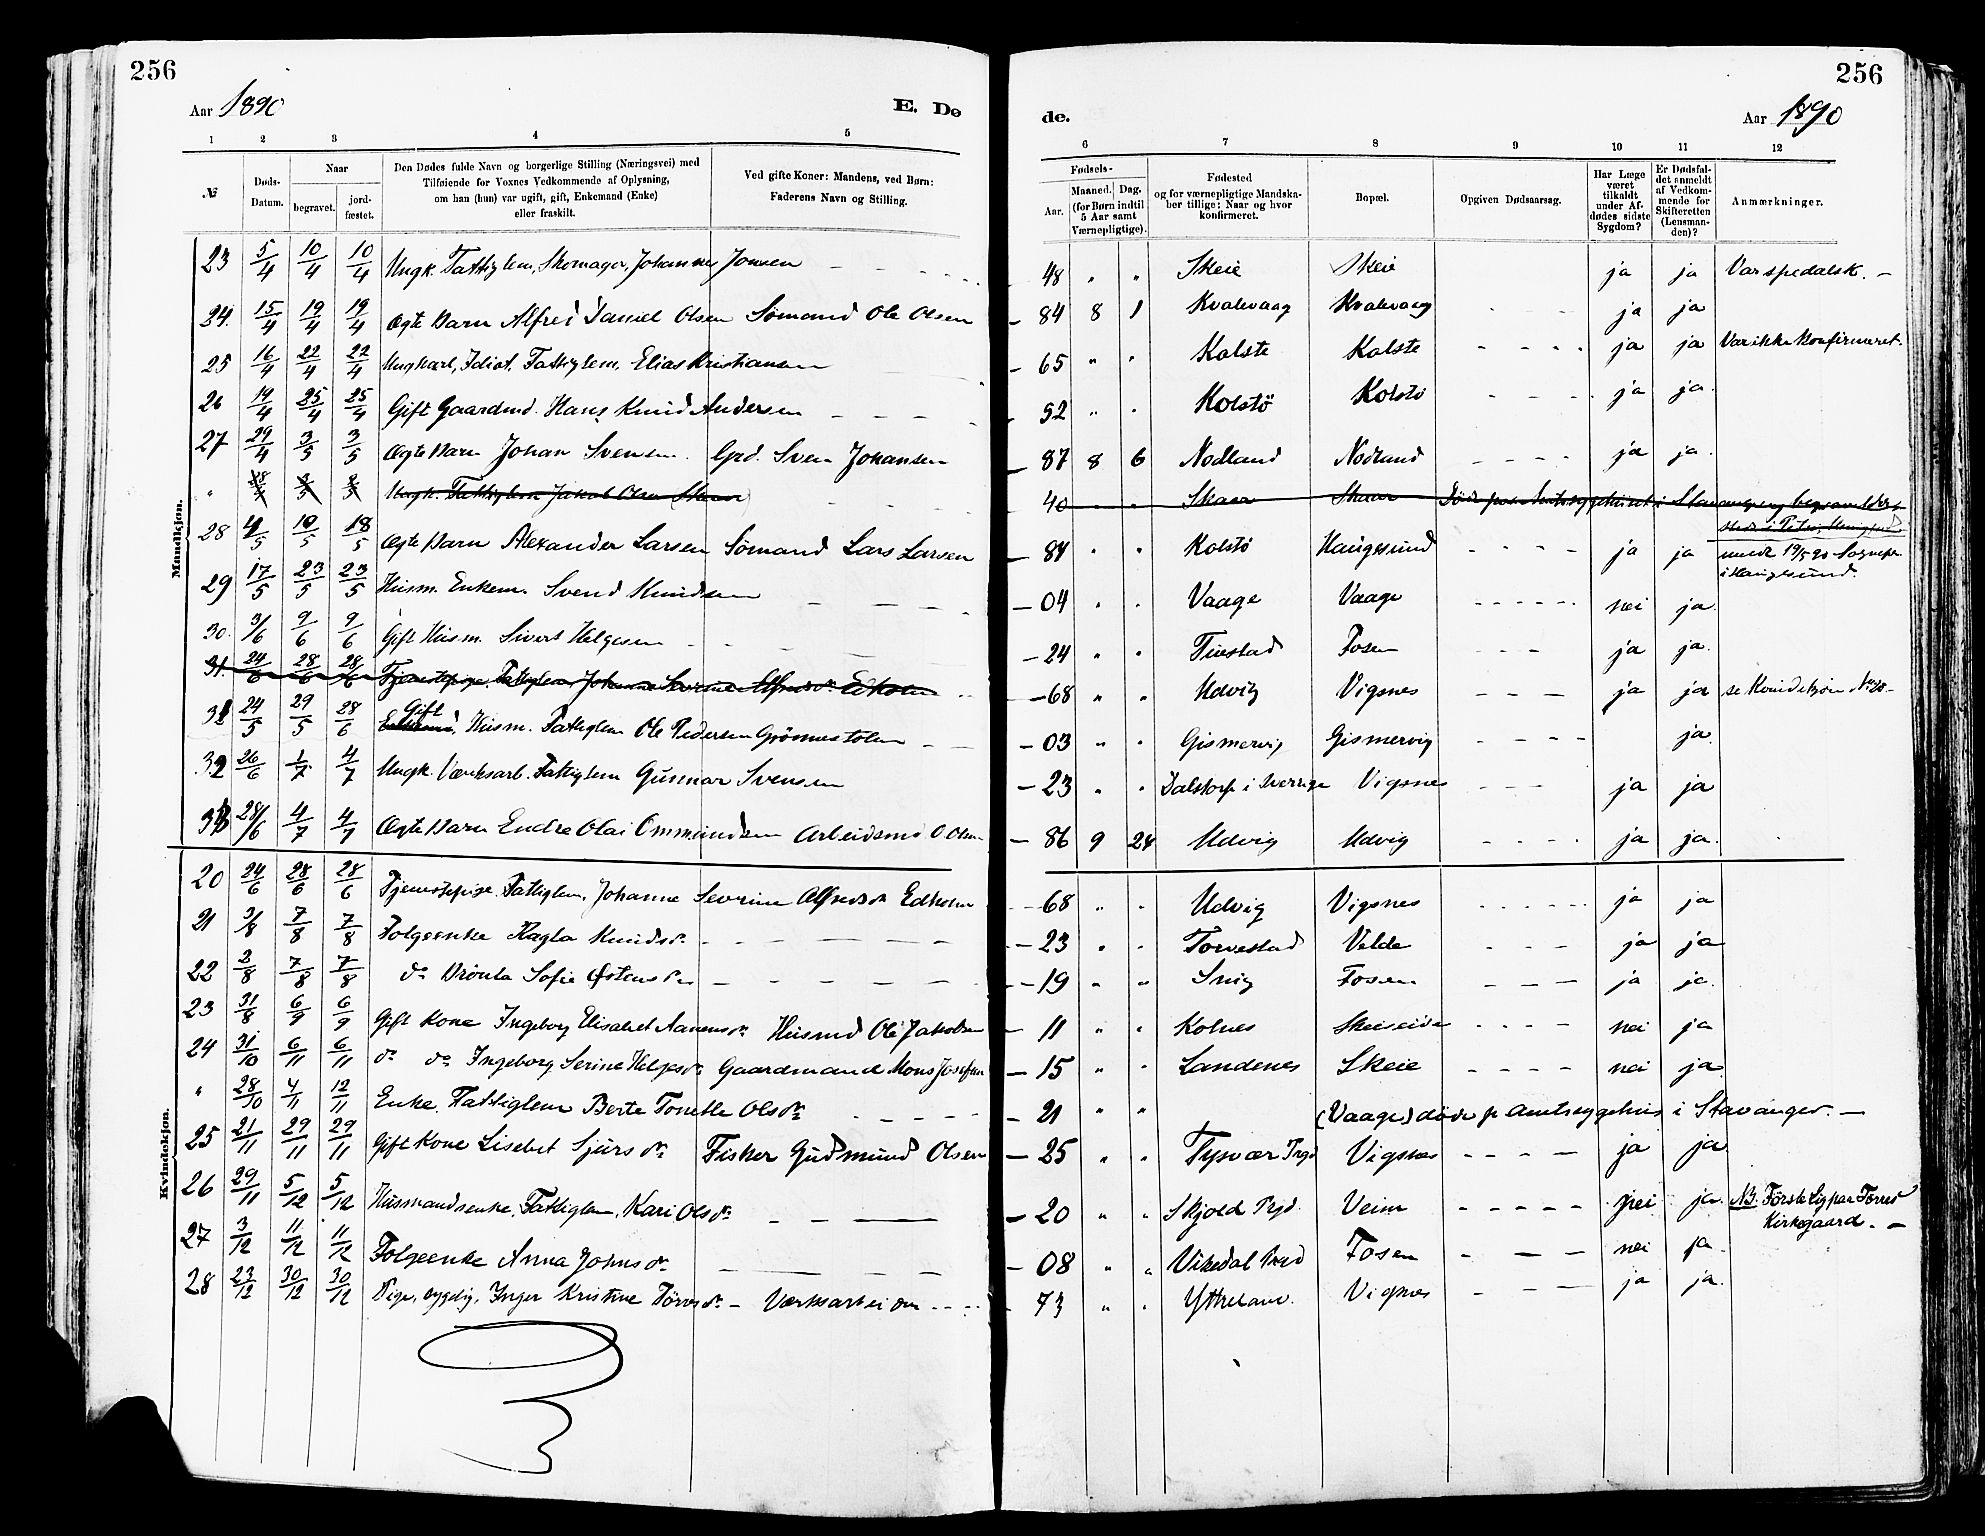 256
256
Aar 1890
E. Dø
de.
Aar 1890
1 2 3 4 5
6 7 8 9 10 11 12
№
Døds-Datum.
Naar
begravet.
jord-fæstet.
Den Dødes fulde Navn og borgerlige Stilling (Næringsvei) med
Tilføiende for Voxnes Vedkommende af Oplysning,
om han (hun) var ugift, gift, Enkemand (Enke)
eller fraskilt.
Ved gifte Koner: Mandens, ved Børn:
Faderens Navn og Stilling.
Fødsels-
Aar.
Maaned. Dag.
(for Børn indtil
5 Aar samt
Værnepligtige).
Fødested
og for værnepligtige Mandska-
ber tillige: Naar og hvor
konfirmeret.
Bopæl.
Opgiven Dødsaarsag.
Har Læge
været
tilkaldt
under Af-
dødes sidste
Sygdom?
Er Dødsfal-
det anmeldt
af Vedkom-
mende for
Skifteretten
(Lensman-
den)?
Anmærkninger.
Mandkjøn.
23 5/4 10/4 10/4 Ungk. Fattiglem, Skomager, Johannes Jonsen 48 " " Skeie Skeie ja ja Var spedalsk. –
24. 15/4 19/4 19/4 Ægte Barn Alfred Daniel Olsen Sømand Ole Olsen 84 8 1 Kvalevaag Kvalevaag ja ja
25 16/4 22/4 22/4 Ungkarl, Idiot, Fattiglem, Elias Kristiansen 65 " " Kolstø Kolstø ja ja Var ikke konfirmeret.
26 19/4 25/4 25/4 Gift Gaardmd. Hans Knud Andersen 52 " " Kolstö Kolstö ja ja.
27 29/4 3/5 3/5 Ægte Barn Johan Svensen Grd. Sven Johansen 87 8 6 Nodland Nodland ja ja.
" Ungk. Fattiglem Jakob Olsen (Skaar) 40 Skaar Skaar Døde paa Amtssygehuset i Stavanger og
28 4/5 10/5 18/5 Ægte Barn Alexander Larsen Sømand Lars Larsen 84 " " Kolstø Haugesund ja ja medt 19/5 90 Sognepr.
i Haugesund.
29 17/5 23/5 23/5 Husm. Enkem. Svend Knudsen 04 " " Vaage Vaage nei ja.
30. 3/6 9/6 9/6 Gift Husm. Sivert Helgesen 24 " " Tuestad Fosen ja ja.
31. 24/6 28/6 28/6 Tjenestepige. Fattiglem Johanne Severine Alfredsdr. Edholm 68 " " Udvig Vigsnes ja ja se Kvindekjøn № 20
31 24/5 29/5 28/6 Enkemd Gift, Husm. Fattiglem Ole Pedersen Grønnestolen 03 " " Gismervig Gismervig ja.
32 26/6 1/7 4/7 Ungk. Værksarb. Fattiglem Gunnar Svensen 23 " " Dalstorp i Sverrige Vigsnes ja ja
33 28/6 4/7 4/7 Ægte Barn Endre Olai Ommundsen Arbeidsmd O. Olsen 86 9 24 Udvig Udvig ja ja.
Kvindekjøn.
20 24/6 28/6 28/6 Tjenestepige. Fattiglem, Johanne Severine Alfredsdr Edholm 68 " " Udvig Vigsnes ja ja
21 3/8 7/8 7/8 Folgeenke Ragla Knudsdr. 23 " " Torvestad Velde ja ja
22 2/8 7/8 7/8 do Vronla Sofie Østensdr 19 " " Snig Fosen ja ja.
23 31/8 6/9 6/9 Gift Kone Ingeborg Elisabet Aanensdr. Husmd Ole Jakobsen 11 " " Kolnes Skeiseide nei ja
24 31/10 6/11 6/11 do do Ingeborg Serine Helgesdr. Gaardmand Mons Josefsen 15 " " Sandenes Skeie nei ja
" 28/10 4/11 12/11 Enke. Fattiglem Berte Tonette Olsdr. 21 " " (Vaage) døde p Amtssygehus i Stavanger. –
25 21/11 29/11 29/11 Gift Kone Lisebet Sjursdr. Fisker Gudmund Olsen 25 " " Tysvær Prgd Vigsnes ja ja
26 29/11 5/12 5/12 Husmandsenke, Fattiglem, Kari Olsdr. 20 " " Skjold Prgd. Veim nei ja. NB. Første Lig paa Torvest
Kirkegaard. –
27 3/12 11/12 11/12 Folgeenke Anna Johnsdr. 08 " " Vikedal Prgd Fosen nei ja.
28 23/12 30/12 30/12 Pige, sygelig, Inger Kristine Tørresdr. – Værksarbeider 73 " " Ytreland. Vigsnes ja ja.